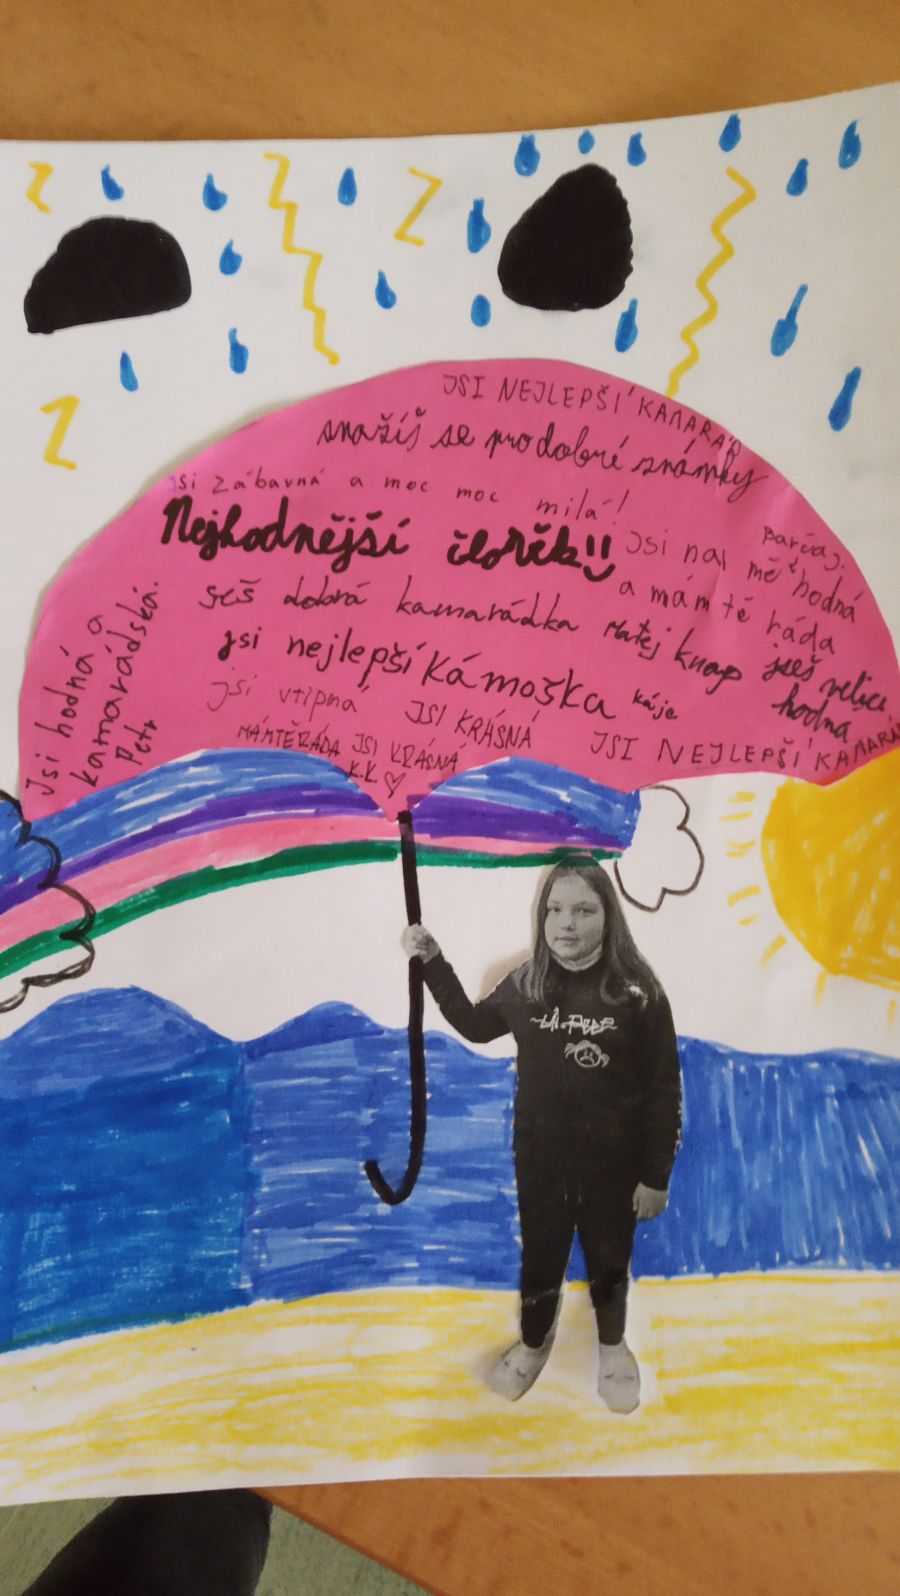 JSI NEJLEPŠÍ KAMARÁD
snažíš se pro dobré známky
jsi zábavná a moc moc milá!
Nejhodnější človĕk!!
Jsi na mě hodná
a mám tě ráda
seš dobrá kamarádka Matěj
jseš velice
hodná
jsi nejlepší kámoška
jsi vtipná
JSI KRÁSNÁ
MÁM TĚ RÁDA JSI KRÁSNÁ
K.K ♡
JSI NEJLEPŠÍ KAMARÁD
Jsi hodná a
kamarádská.
Petr